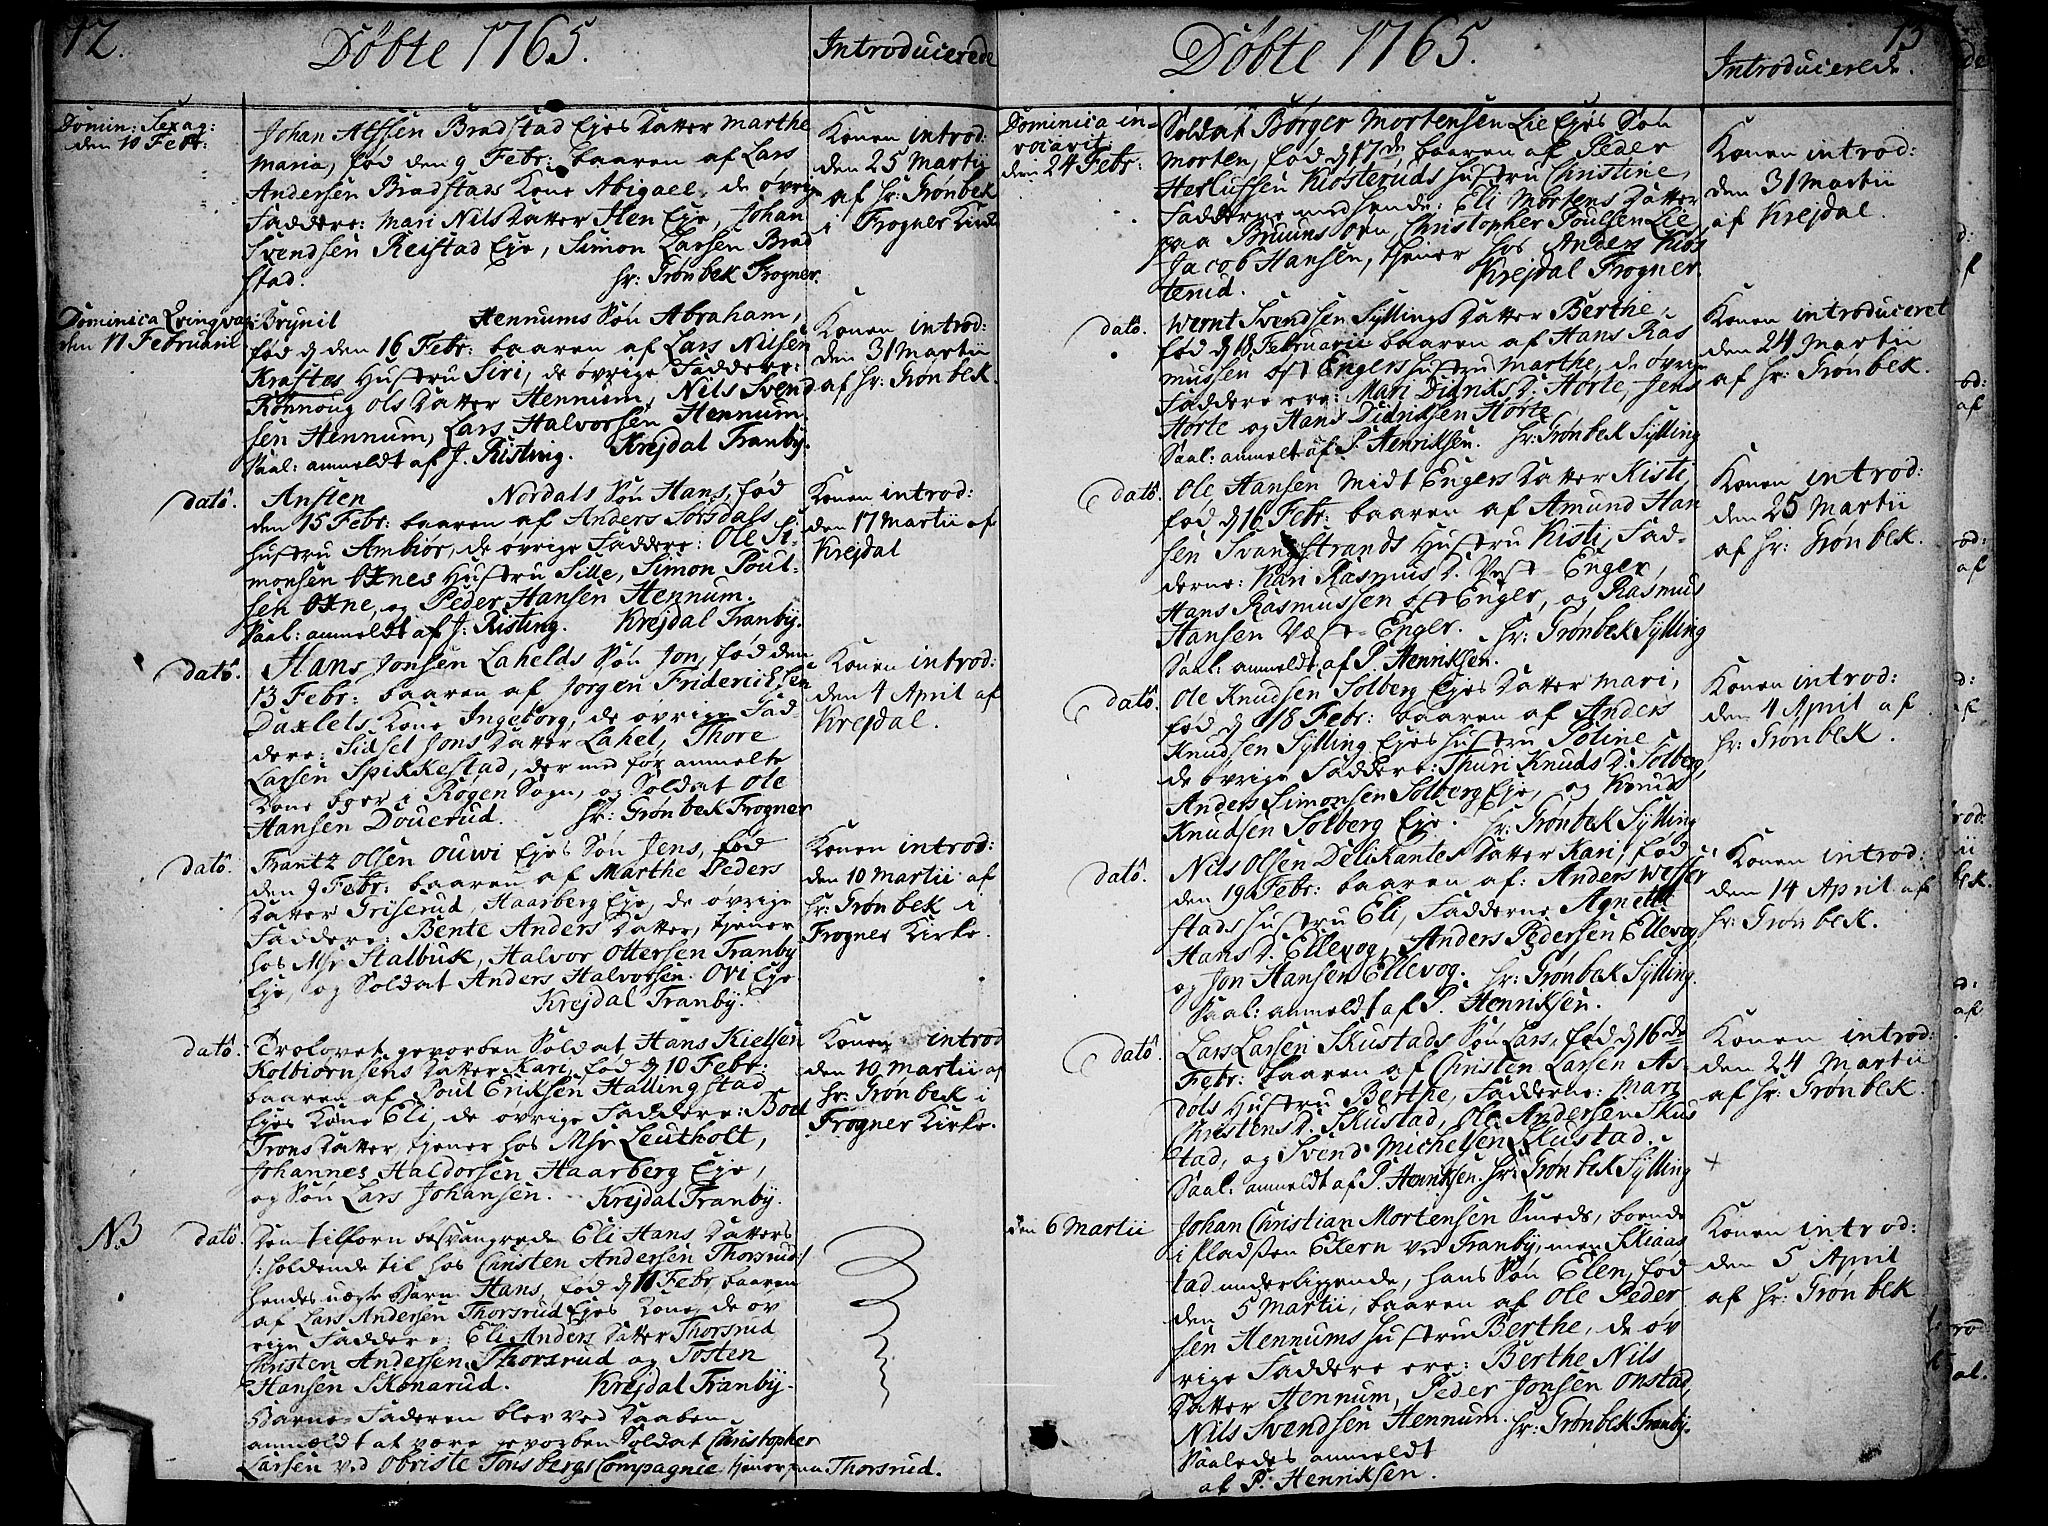 12.
Døbte 1765.
Introducerede
Domin: Sexag:
den 10 Febr:
Johan Alfsen Bradstad Ejes Datter Marthe
Maria, fød den 9 Febr: baaren af Lars
Andersen Bradstads Kone Abigael, de øvrige
Faddere: Mari Nils Datter Hen Eje, Johan
Svendsen Reistad Eje, Simon Larsen Brad
stad.
hr: Grønbek Frogner.
Konen introd:
den 25 Martii
af hr: Grønbek
i Frogner Kirke
Dominica Qvinqvag:
den 17 Februarii
Brynil Hennums Søn Abraham,
fød d den 16 Febr: baaren af Lars Nilsen
Kraftes Hustru Siri, de øvrige Faddere:
Rønnoug Ols Datter Hennum, Nils Svend
sen Hennum, Lars Halvorsen Hennum.
Saal: anmeldt af J. Risting. Krejdal Tranby.
Konen introd:
den 31 Martii
af hr: Grønbek.
dato.
Ansten Nordals Søn Hans, fød
den 15 Febr: baaren af Anders Sørsdals
Hustru Ambiør, de øvrige Faddere: Ole Si-
monsen Oxnes Hustru Sille, Simon Poul-
sen Oxne, og Peder Hansen Hennum.
Saal: anmeldt af J: Risting. Krejdal Tranby.
Konen introd:
den 17 Martii af
Krejdal
dato.
Hans Jonsen Lahelds Søn Jon, fød den
13 Febr: baaren af Jørgen Friderichsen
Daxlets Kone Ingeborg, de øvrige Fad-
dere: Sidsel Jons Datter Lahel, Thore
Larsen Spikkestad, der med før anmelte
Kone boer i Røgen Sogn, og Soldat Ole
Hansen Douerud. hr: Grønbek Frogner
Konen introd:
den 4 April af
Krejdal.
dato.
Frantz Olsen Ouwi Ejes Søn Jens, fød
den 9 Febr: baaren af Marthe Peders
Datter Griserud, Haarberg Eje, de øvrige
Faddere: Bente Anders Datter, tjener
hos Mr Stalbuk, Halvor Ottersen Tranby
Eje, og Soldat Anders Halvorsen Ovi Eje
Krejdal Tranby.
Konen introd:
den 10 Martii af
hr: Grønbek i
Frogner Kirke.
dato.
Trolovet gevorben Soldat Hans Kielsen
Kolbiørnsens Datter Kari, fød d 10 Febr:
baaren af Poul Eriksen Hallingstad
Ejes Kone Eli, de øvrige Faddere: Boel
Trons Datter, tjener hos Mr Leutholt,
Johannes Haldorsen Haarberg Eje,
og Søn Lars Johansen. Krejdal Tranby.
Konen introd
den 10 Martii af
hr: Grønbek i
Frogner Kirke.
NB dato.
Den tilforn besvangrede Eli Hans Datters
/: holdende til hos Christen Andersen Thorsrud :/
hendes uægte Barn Hans, fød d 11 Febr, baaren
af Lars Andersen Thorsrud Ejes Kone, de øv
rige Faddere: Eli Anders Datter Thorsrud
Christen Andersen Thorsrud og Tosten
Hansen Skonarud. Krejdal Tranby.
Barne Faderen blev ved Daaben
anmældt at være gevorben Soldat Christopher
Larsen ved Obriste Tønsbergs Compagnie, tjener paa Thorsrud.
13
Døbte 1765.
Introducerede.
Dominica in-
vocavit
den 24 Febr:
Soldat Børger Mortensen Lie Ejes Søn
Morten, fød d 17de, baaren af Peder
Herlufsen Klosteruds Hustru Christine,
Fadderne med hende: Eli Mortens Datter
paa Bruuns ørn, Christopher Poulsen Lie
Jacob Hansen, tjener hos Anders Klos
terud. Krejdal Frogner
Konen introd:
den 31 Martii
af Krejdal.
dato.
Wernt Svendsen Syllings Datter Berthe,
fød d 18 Februarii baaren af Hans Ras
mussen Øst Engers Hustru Marthe, de øvrige
Faddere ere: Mari Didriks D: Horte, Jens
Horte og Hans Didriksen Horte
Saal: anmelt af P. Henriksen. hr: Grønbek Sylling
Konen introduceret
den 24 Martii
af hr: Grønbek.
dato.
Ole Hansen Midt Engers Datter Kisti,
fød d 16 Febr: baaren af Amund Han
sen Svangstrands Hustru Kisti, Fad-
derne: Kari Rasmus D. Vest Enger,
Hans Rasmussen Øst Enger, og Rasmus
Hansen Væst-Enger. hr: Grønbek Sylling
Saal: anmeldt af P. Henriksen.
Konen introd:
den 25 Martii
af hr: Grønbek.
dato.
Ole Knudsen Solberg Ejes Datter Mari,
fød d 18 Febr: baaren af Anders
Knudsen Sylling Ejes Hustru Soline
de øvrige Faddere: Thuri Knuds D. Solberg,
Anders Simonsen Solberg Eje, og Knud
Knudsen Solberg Eje. hr: Grønbek Sylling
Konen introd:
den 4 April af
hr: Grønbek.
dato.
Nils Olsen Delikantes Datter Kari, fød
den 19 Febr: baaren af: Anders Wefser
stads Hustru Eli, Fadderne Agnethe
Hans D. Ellevog, Anders Pedersen Ellevog,
og Jon Hansen Ellevog. hr: Grønbek Sylling.
Saal: anmeldt af P. Henriksen.
Konen introd:
den 14 April af
hr: Grønbek.
dato.
Lars Larsen Skustads Søn Lars, fød d 16de
Febr: baaren af Christen Larsen As-
døls Hustru Berthe, Fadderne: Mari
Christens D. Skustad, Ole Andersen Skus
tad, og Svend Michelsen Skustad.
Saal: anmeldt af P. Henriksen. hr: Grønbek Sylling
Konen introd:
den 24 Martii
af hr: Grønbek.
den 6 Martii
Johan Christian Mortensen Smeds, boende
i Pladsen Ekern ved Tranby, men Skiaas
tad underliggende, hans Søn Elen, fød
den 5 Martii, baaren af Ole Peder
sen Hennums Hustru Berthe, de øv
rige Faddere ere: Berthe Nils
Datter Hennum, Peder Jonsen Onstad,
Nils Svendsen Hennum. hr: Grønbek Tranby.
Saaledes anmeldt
af P. Henriksen.
Konen introd:
den 5 April
af hr: Grønbek